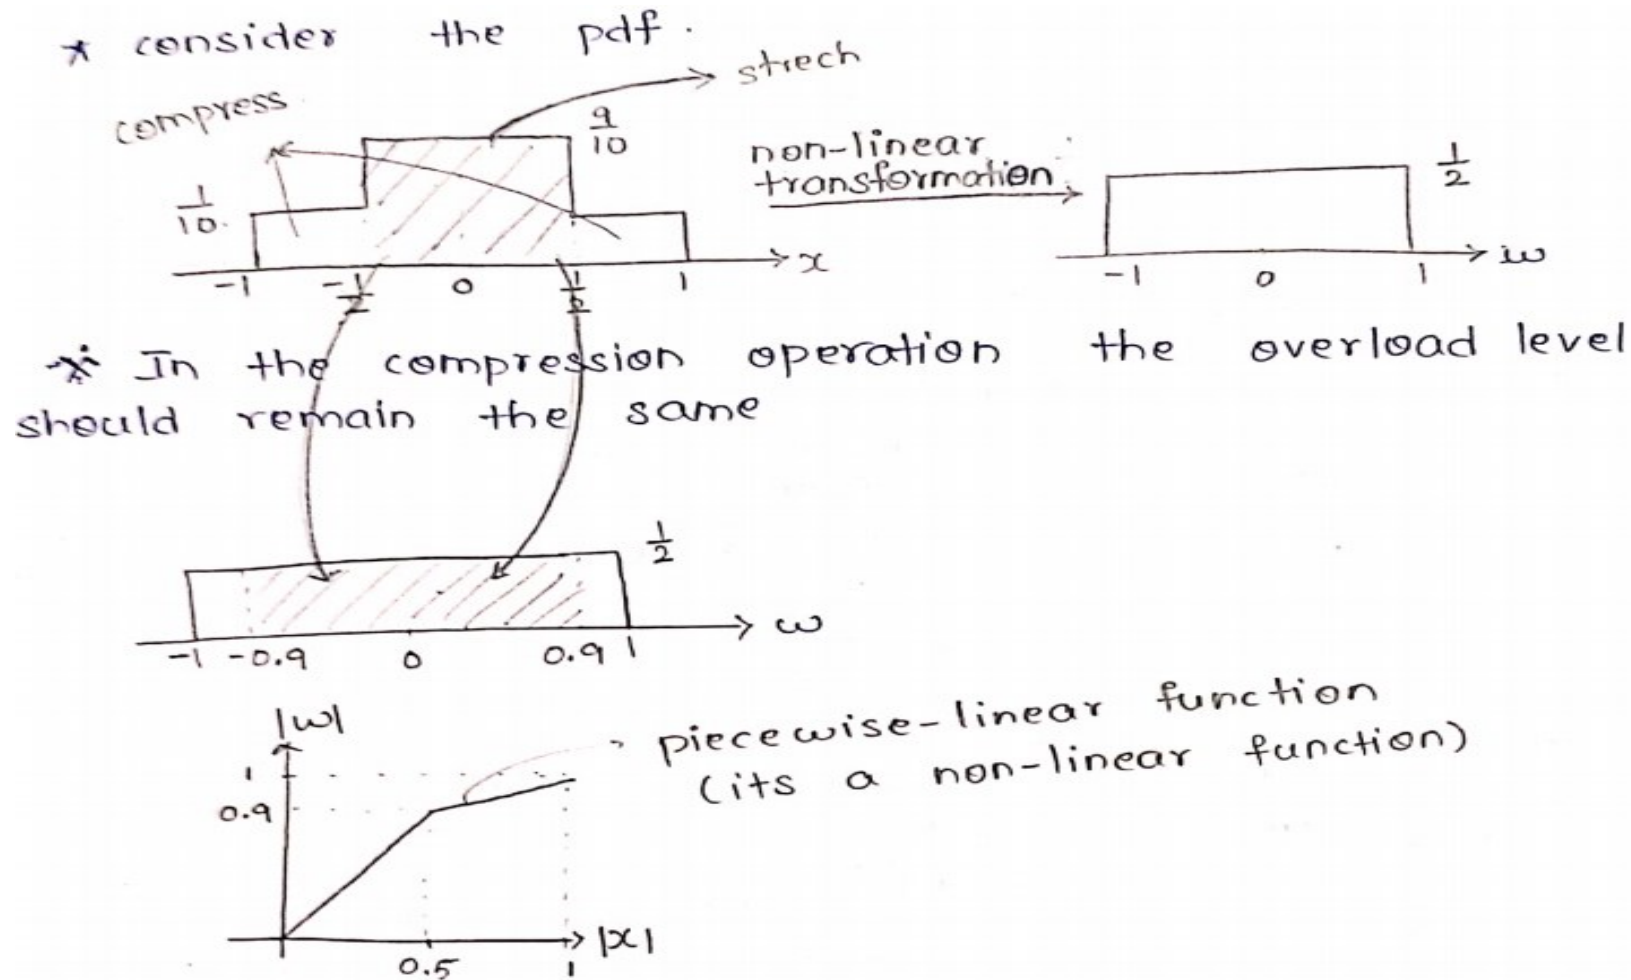 * consider the pdf.
compress
strech
9/10
1/10
-1 -1/2 0 1/2 1
x
non-linear
transformation
1/2
-1 0 1
w
* In the compression operation the overload level
should remain the same
1/2
-1 -0.9 0 0.9 1
w
|w|
1
0.9
0.5 1
|x|
piecewise-linear function
(its a non-linear function)